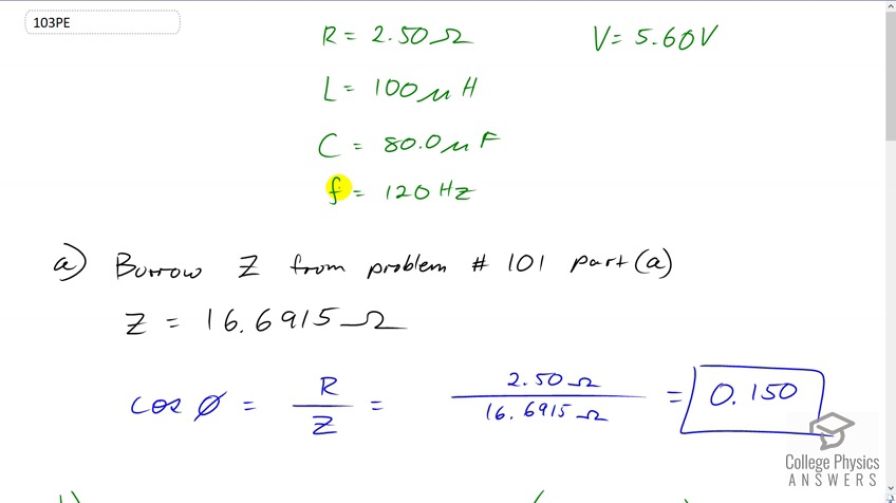 103PE
R = 2.50Ω V = 5.60V
L = 100μH
C = 80.0μF
f = 120 Hz
a) Burrow Z from problem # 101 part (a)
Z = 16.6915Ω
cos φ = R/Z = 2.50Ω/16.6915Ω = 0.150
College Physics
ANSWERS